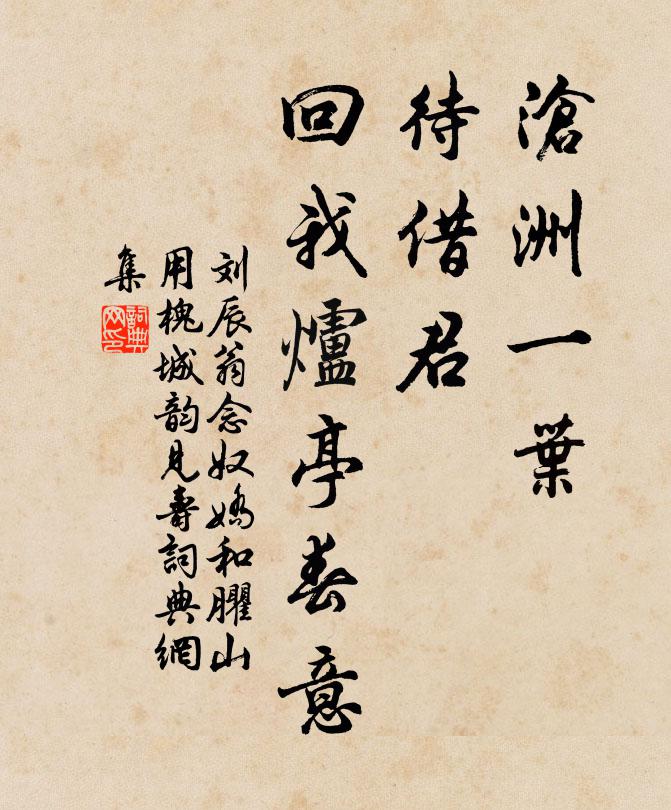 滄洲一葉
待借君
回我爐亭春意
刘辰翁念奴嬌和臞山
用槐城韵見壽詞典網
集
詞典
网印